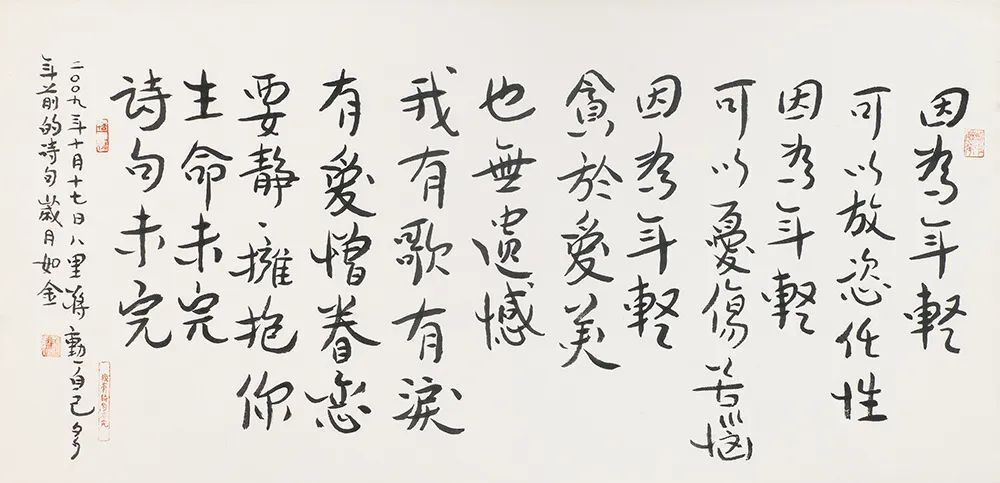 因為年輕
可以放恣任性
因為年輕
可以憂傷苦惱
因為年輕
貪於愛美
也無遺憾
我有歌有淚
有愛憎眷戀
要靜〻擁抱你
生命未完
詩句未完
二〇〇九年十月十七日八里蔣勳自己多
年前的詩句歲月如金